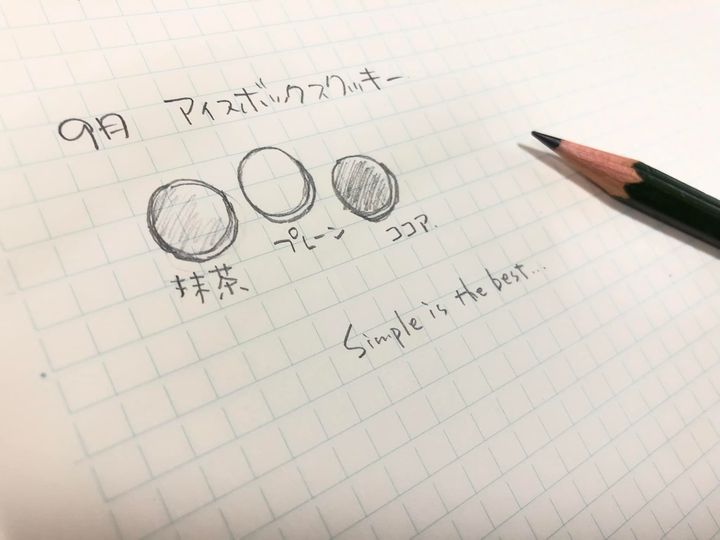 9月 アイスボックスクッキー
抹茶 プレーン ココア
Simple is the best...